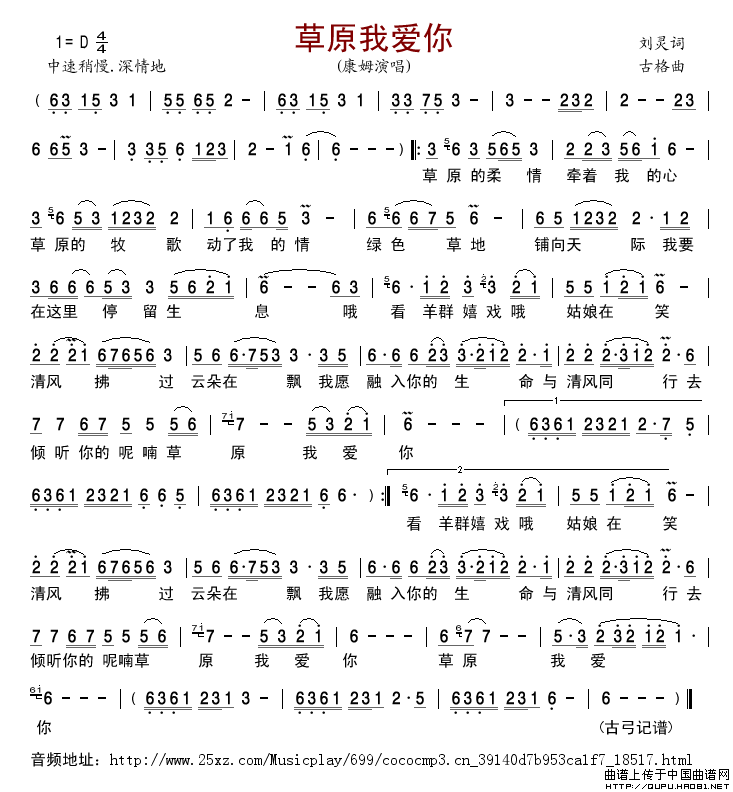 草原我爱你
1= D 4/4
刘灵词
中速稍慢.深情地
(康姆演唱)
古格曲
( 63 15 3 1 | 55 65 2 - | 63 15 3 1 | 33 75 3 - | 3 - - 232 | 2 - - 23 |
6 65 3 - | 3 35 6 123 | 2 - 1 6 | 6 - - - ) ‖: 3 56 3 565 3 | 2 23 56 1 6 - |
草 原 的柔 情 牵着 我 的心
3 56 53 1232 2 | 1 6 6 65 3 - | 6 6 6 7 5 6 - | 65 5232 2 · 12 |
草 原的 牧 歌 动了我 的 情 绿 色 草 地 铺向天 际 我要
3 66 653 3 | 56 21 6 - | 6 - - 63 | 56 · 12 3 23 21 | 5 5 121 6 - |
在这里 停 留 生 息 哦 看 羊群 嬉 戏 哦 姑娘在 笑
2 2 21 67656 3 | 6 6 6·753 3 · 35 | 6 · 6 23 3·212 2 · 1 | 2 2 2·312 2 · 6 |
清风 拂 过 云朵在 飘 我愿 融 入你的 生 命 与 清风同 行 去
7 7 67 5 5 56 | 7i7 - - 53 21 | 6 - - - | 1 ( 6361 2321 2 · 7 5 |
倾 听 你的 呢 喃 草 原 我 爱 你
6361 2321 6 6 5 | 6361 2321 6 6 · ) :‖ 2 56 · 12 3 23 21 | 5 5 121 6 - |
看 羊群嬉 戏 哦 姑娘 在 笑
2 2 21 67656 3 | 6 6 6·753 3 · 35 | 6 · 6 23 3·212 2 · 1 | 2 2 2·312 2 · 6 |
清风 拂 过 云朵在 飘 我愿 融 入你的 生 命 与 清风同 行 去
7 7 67 5 5 56 | 7i7 - - 53 21 | 6 - - - | 667 7 - - | 5·3 2 32 12 1 |
倾听你的 呢喃草 原 我 爱 你 草 原 我 爱
6i6 - - - | ( 6361 231 3 - | 6361 231 2 · 5 | 6361 231 5 6 | 6 - - - ) ‖
你
(古弓记谱)
音频地址: http://www.25xz.com/Musicplay/699/cococmp3.cn_39140d7b953ca1f7_18517.html
曲谱上传于中国曲谱网
http://QUPU.HAO81.NET